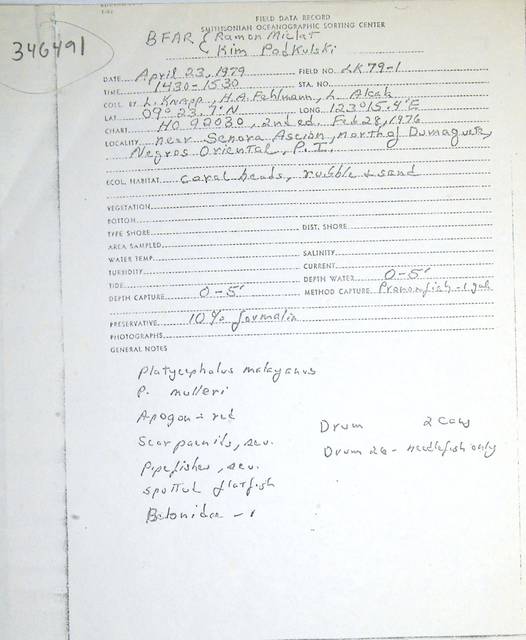 FIELD DATA RECORD
SMITHSONIAN OCEANOGRAPHIC SORTING CENTER
346491
BFAR { Ramon Miclat
{ Kim Podkulski
DATE April 23, 1979 FIELD NO. LK 79-1
TIME 1430-1530 STA. NO.
COLL. BY L. Knapp, H.A. Fehlmann, L. Alcala
LAT. 09° 23.7'N LONG. 123°15.4'E
CHART HO 92030, 2nd ed. Feb 28, 1976
LOCALITY near Senora Ascion, north of Dumaguete,
Negros Oriental, P.I.
ECOL. HABITAT coral heads, rubble & sand
VEGETATION
BOTTOM
TYPE SHORE DIST. SHORE
AREA SAMPLED
WATER TEMP. SALINITY
TURBIDITY CURRENT
TIDE DEPTH WATER 0-5'
DEPTH CAPTURE 0-5' METHOD CAPTURE Pronoxfish - 1 gal
PRESERVATIVE 10% formalin
PHOTOGRAPHS
GENERAL NOTES
Platycephalus malayanus
P. mulleri
Apogon - red
Drum 2 Caws
Scorpaenids, sev.
Drum 26 - needlefish only
Pipefishes, sev.
spotted flatfish
Belonidae - 1